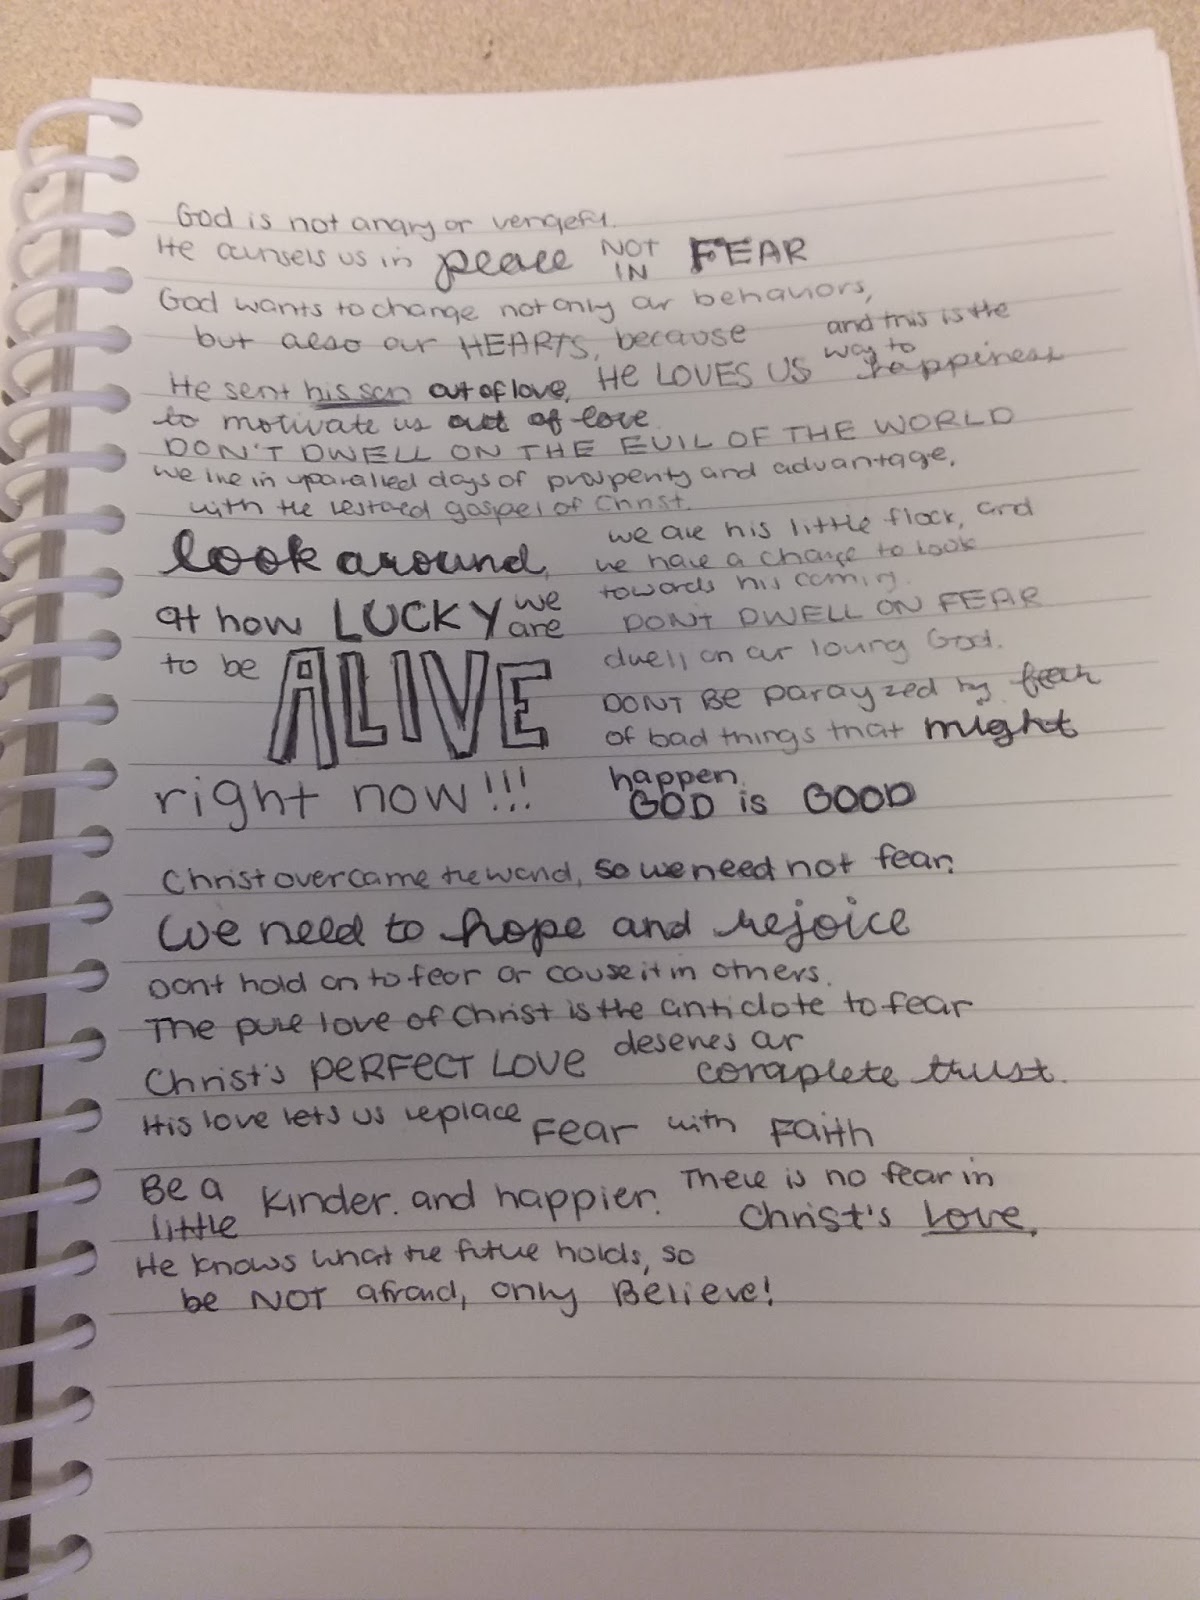 God is not angry or vengeful.
He counsels us in peace NOT IN FEAR
God wants to change not only our behaviors,
but also our HEARTS, because
He sent his son out of love, HE LOVES US and this is the way to happiness
to motivate us out of love.
DON'T DWELL ON THE EVIL OF THE WORLD
we live in uparalled days of prosperity and advantage,
with the restored gospel of Christ.
look around,
at how LUCKY we are
to be ALIVE
right now!!!
we are his little flock, and
we have a chance to look
towards his coming.
DON'T DWELL ON FEAR
dwell on our loving God.
DONT BE parayzed by fear
of bad things that might
happen.
GOD is GOOD
Christ overcame the world, so we need not fear.
We need to hope and rejoice
Dont hold on to fear or cause it in others.
The pure love of Christ is the antidote to fear
Christ's PERFECT LOVE deserves our complete trust.
His love lets us replace Fear with Faith
Be a little kinder. and happier. There is no fear in Christ's Love.
He knows what the future holds, so
be NOT afraid, only Believe!